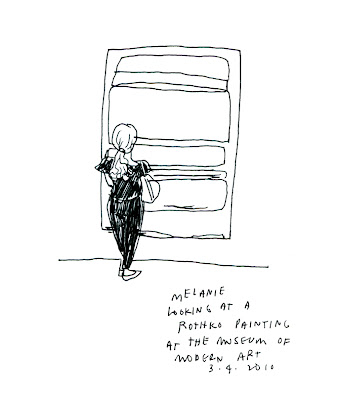 MELANIE
LOOKING AT A
ROTHKO PAINTING
AT THE MUSEUM OF
MODERN ART
3.4.2010